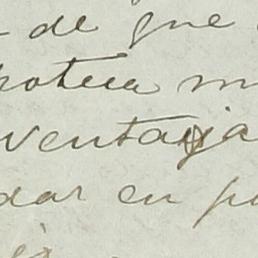 de que
hoteca m
ventaja
dar en po